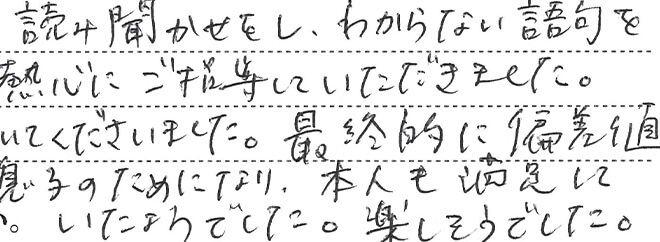 読み聞かせをし、わからない語句を
熱心にご指導していただきました。
いてくださいました。最終的に偏差値
息子のためになり、本人も満足して
。いたようでした。楽しそうでした。